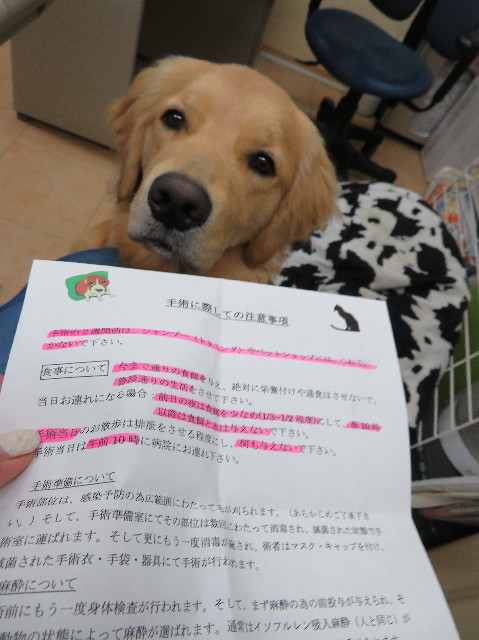 手術に際しての注意事項
手術の2週間前は、シャンプー(トリミング)やペットショップには、つれていかないで下さい。
食事について 今まで通りの食餌を与え、絶対に栄養付けや過食はさせないで、
普段通りの生活をさせて下さい。
当日お連れになる場合:前日の夜は食餌を少なめ(1/3~1/2程度)にして、夜
以降は食餌と水は与えないで下さい。
手術当日のお散歩は排泄をさせる程度にし、何も与えないで下さい。
手術当日は午前10時に病院にお連れ下さい。
手術準備について
手術部位は、感染予防の為広範囲にわたって毛が刈られます。(あらかじめご了承下さ
い。)そして、手術準備室にてその部位は数回にわたって消毒され、滅菌された状態で手
術室に運ばれます。そして更にもう一度消毒が施され、術者はマスク・キャップを付け、
滅菌された手術衣・手袋・器具にて手術が行われます。
麻酔について
術前にもう一度身体検査が行われます。そして、まず麻酔の為の前投与が与えられ、そ
動物の状態によって麻酔が選ばれます。通常はイソフルレン吸入麻酔(人と同じ)が